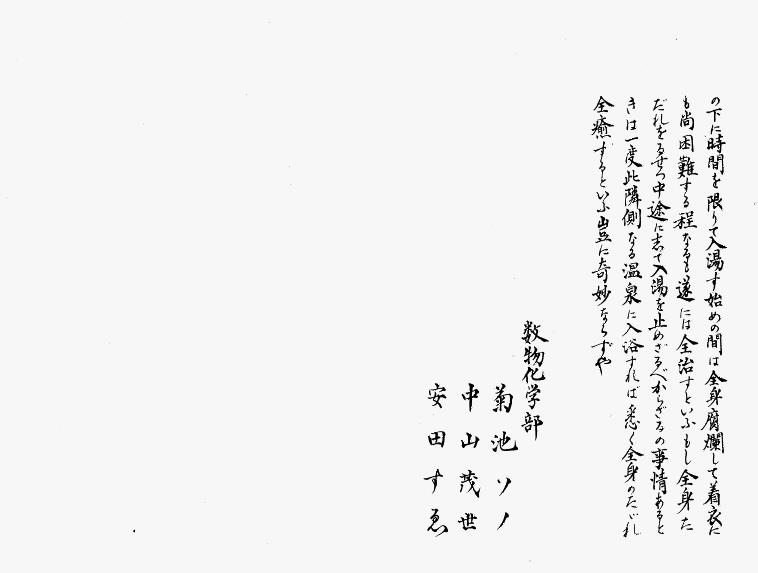 の下に時間を限りて入湯す始めの間は全身腐爛して着衣だ
も尚困難する程なるも遂には全治すといふもし全身た
だれをるせつ中途にて入湯を止めざるべからざるの事情あると
きは一度此隣側なる温泉に入浴すれば悉く全身のたゞれ
全癒するといふ豈に奇妙ならずや
数物化学部
菊池ソノ
中山茂世
安田すゑ